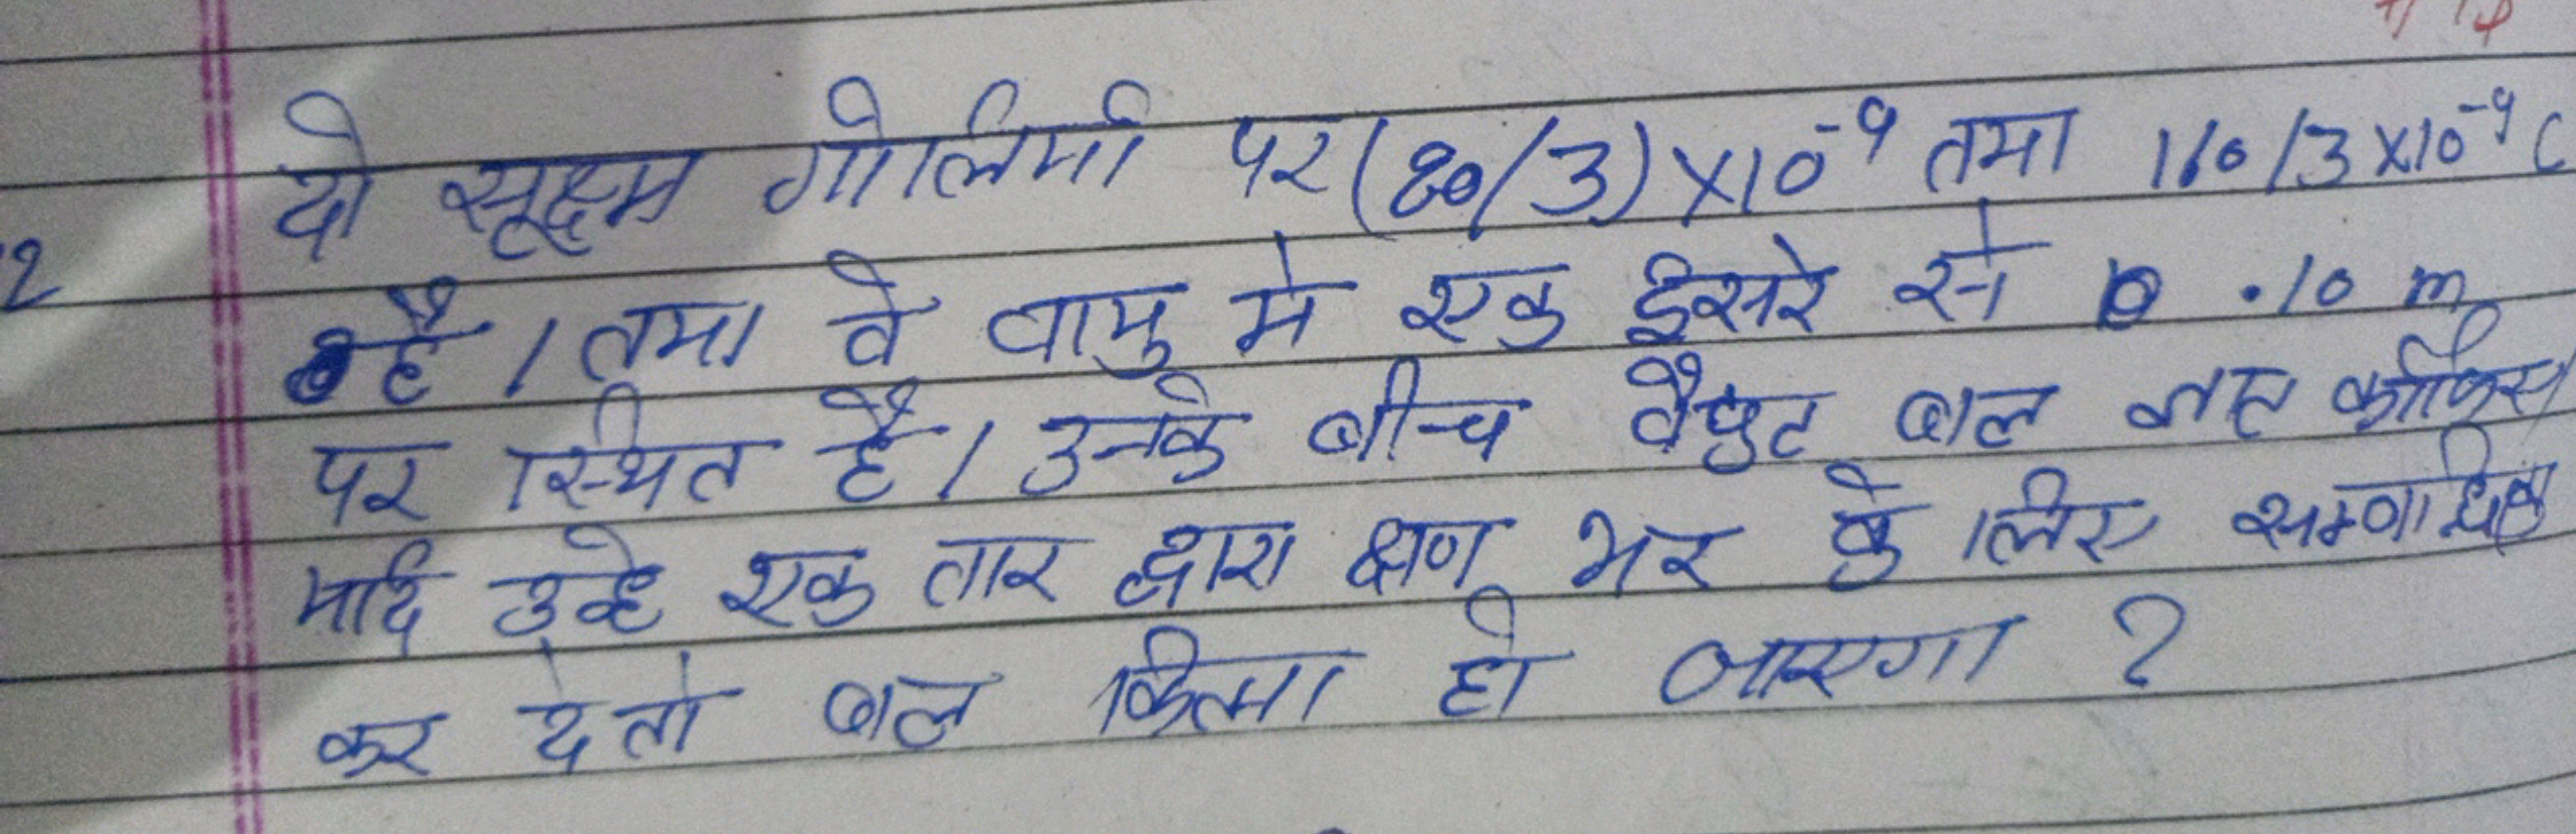 दो सूक्ष्म गोलियों पर (80/3)×10⁻⁹ तथा 160/3×10⁻⁹ C
2 है। तथा वे वायु मे एक दूसरे से 0.10 m
पर स्थित है। उनके बीच वैधुत बल ज्ञात कीजिए।
यदि उन्हे एक तार द्वारा क्षण भर के लिए सम्बन्धित
कर दे तो बल कितना हो जाएगा ?